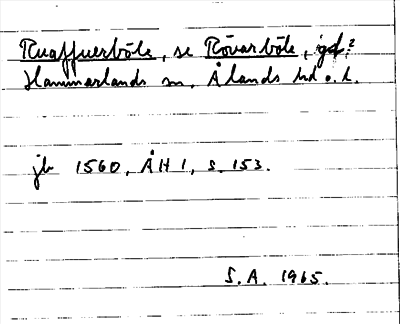 Ruaffuerböle, se Rövarböle, gd.?
Hammarlands sn, Ålands hd o. l.
jb 1560, ÅH 1, s. 153.
S.A. 1965.